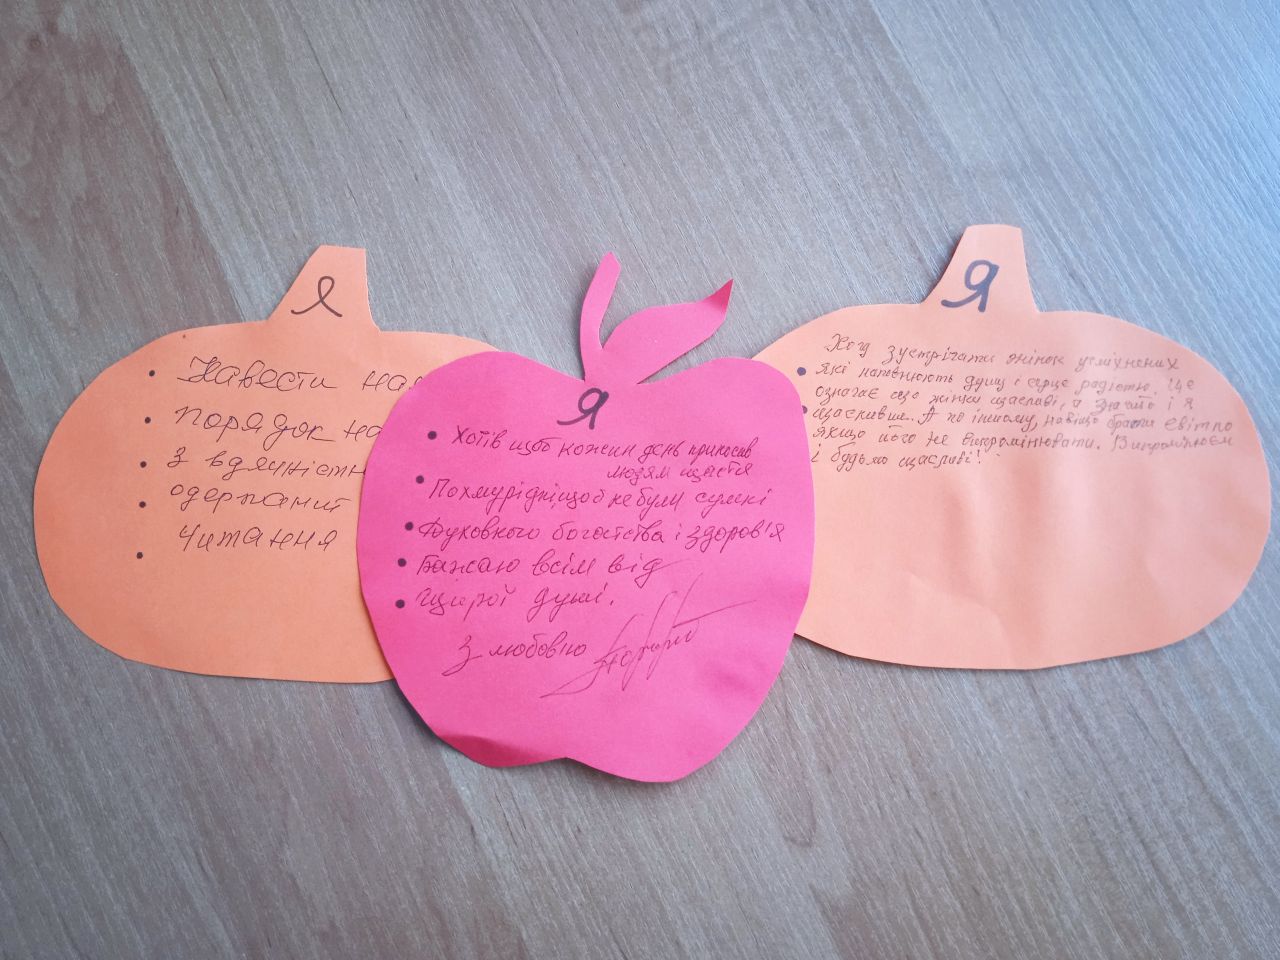 Я
Навести
порядок на
з вдячністю
одержаний
читання
Я
Хотів щоб кожен день приносив
людям щастя
Похмурі дні, щоб не були сумні
Духовного богатства і здоров'я
Бажаю всім від
щирої душі.
З любов'ю
Я
Хочу зустрічати жінок усміхнених
які наповнюють душу і серце радістю. Це
означає що жінки щасливі, а значить і я
щасливіше. А по іншому, навіщо брати світло
якщо його не випромінювати. Випромінюєм
і будьмо щасливі!